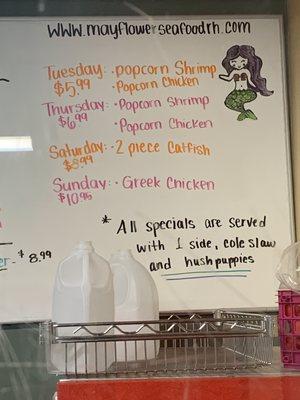 www.mayflowerseafoodrh.com
Tuesday: • popcorn Shrimp
$5.99 • Popcorn Chicken
Thursday: • Popcorn Shrimp
$6.99
• Popcorn Chicken
Saturday: • 2 piece Catfish
$8.99
Sunday: • Greek Chicken
$10.95
* All specials are served
with 1 side, cole slaw
and hushpuppies
- $8.99